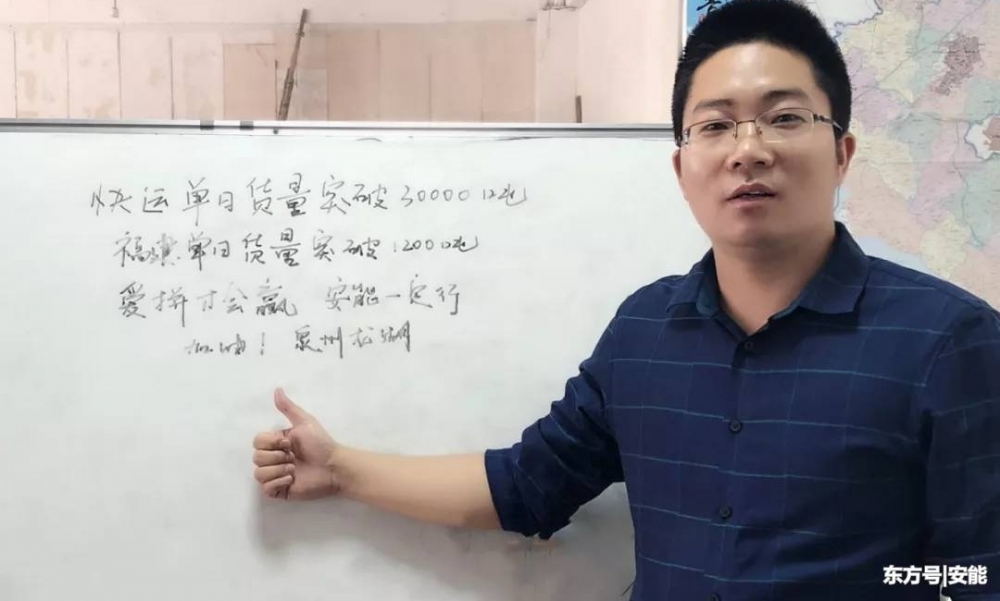 快运单日货量突破30000吨
福建单日货量突破1200吨
爱拼才会赢 安能一定行
加油！泉州松湖
东方号|安能